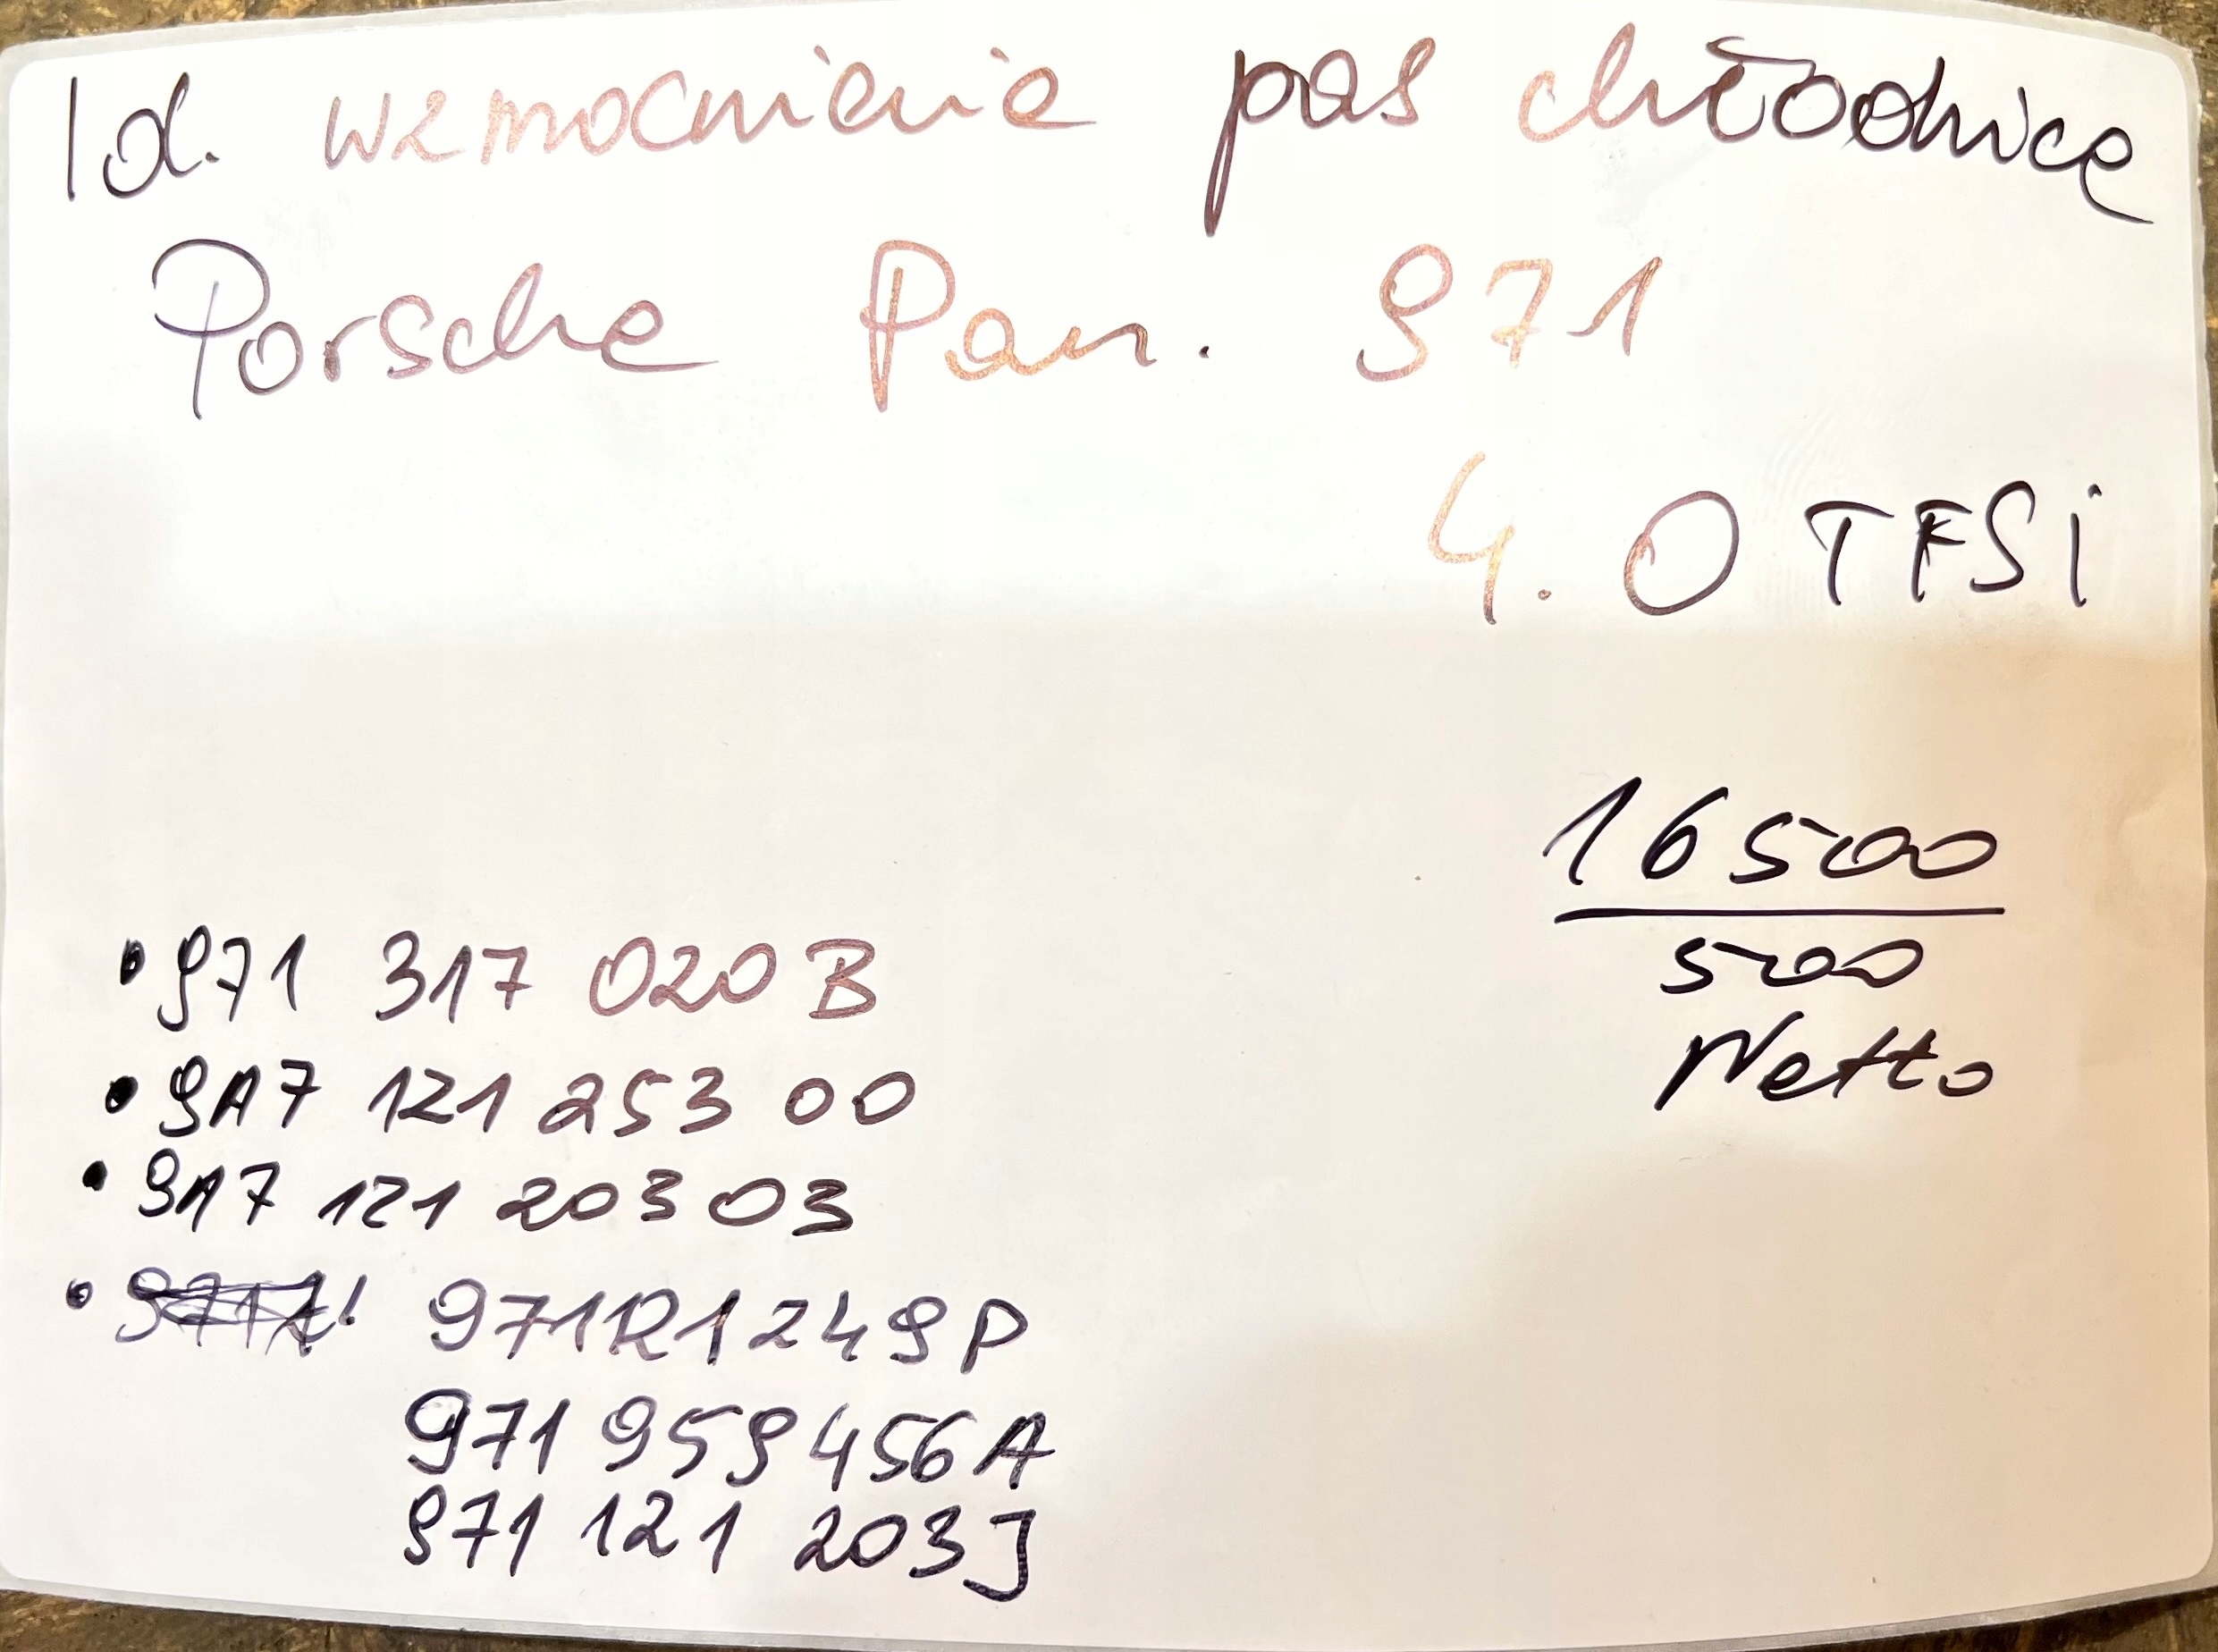 Id. wzmocnienie pas chłodnice
Porsche Pan. 971
4.0 TFSi
16500
500
Netto
• 971 317 020 B
• 9A7 121 253 00
• 9A7 121 203 03
• 971R1249P
971 959 456A
971 121 203J